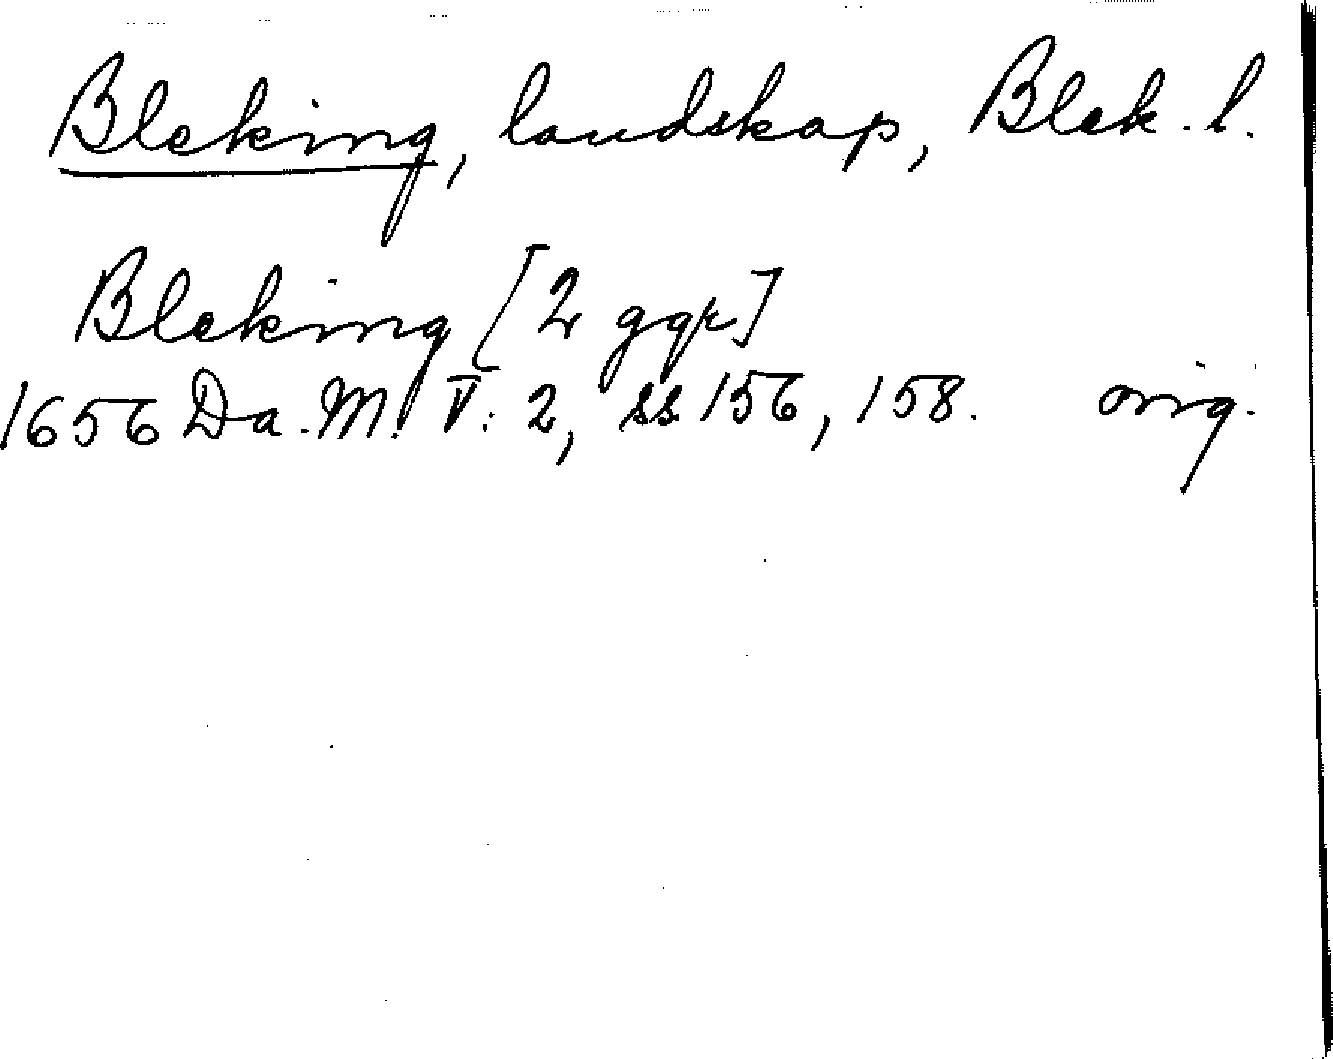 Bleking, landskap, Blek. l.
Bleking [2 ggr]
1656 Da. M. V: 2, ss 156, 158. orig.